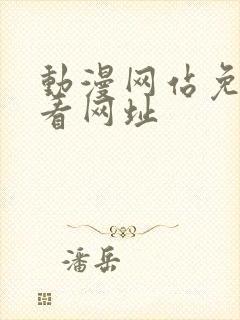 動漫网佔免
看网址
潘岳